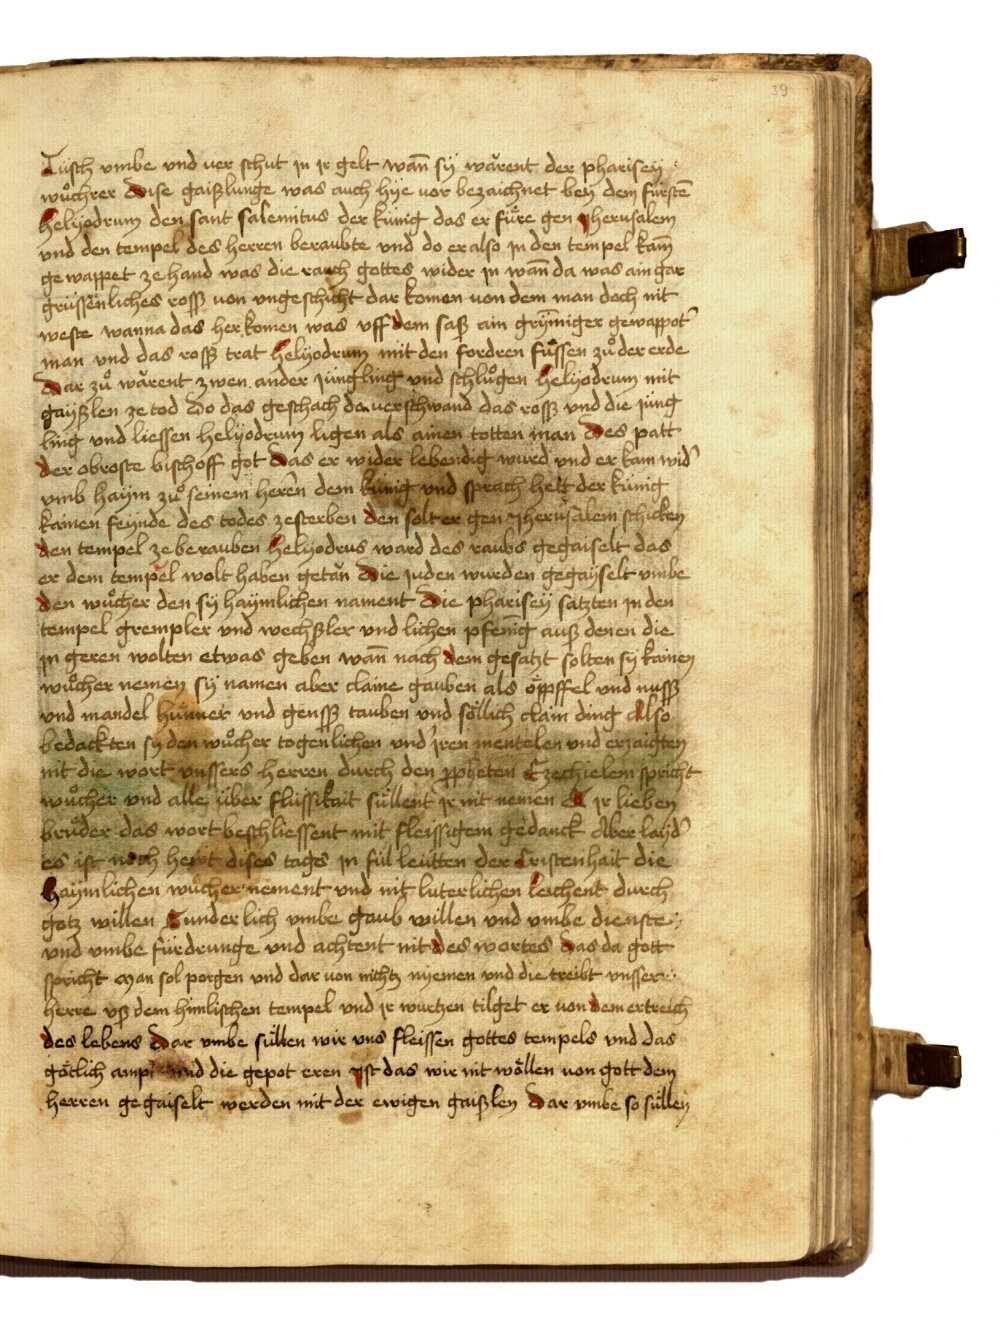 39
Tüsch vmbe vnd ver schut jn jr gelt wañ sÿ wärent der phariseÿ
wůchrer Dise gaißlunge was auch hÿe vor bezaichnet beÿ dem fürstẽ
helÿodrum den sant salemitus der künig das er füre gen Jherusalem
vnd den tempel des herren beraubte vnd do er also jn den tempel kam̃
gewappet ze hand was die rauch gottes wider jn wañ da was ain gar
grüssenliches roß von vngeschicht dar komen von dem man doch nit
weste wanna das her komen was vff dem saß ain grÿm̃iger gewappot
man vnd das roß trat helÿodrum mit den fordren füssen zů der erde
Dar zů wärent zwen ander jüngling vnd schlůgen helÿodrum mit
gaÿßlen ze tod Do das geschach da verschwand das roß vnd die jüng
ling vnd liessen helÿodrum ligen als ainen totten man Des patt
der obroste bischoff got Das er wider lebendig wurd vnd er kam wid'
vmb haÿm zů seinem heren dem künig vnd sprach hett der künig
kainen feÿnde des todes ze sterben den solt er gen Jherusalem schicken
den tempel ze berauben helÿodrus ward des raubs gegaiselt das
er dem tempel wolt haben getän Die juden wurden gegaÿselt vmbe
den wůcher den sÿ haÿmlichen nament Die phariseÿ satzten jn den
tempel grempler vnd wechßler vnd lichen pfenig auß denen die
jn geren wolten etwas geben wañ nach dem gesatzt solten sÿ kainen
wůcher nemen sÿ namen aber claine gauben als öpffel vnd nuss
vnd mandel hünner vnd genss tauben vnd söllich clain ding Also
bedackten sÿ den wůcher togenlichen vnd' jren mentelen vnd erzaigten
nit die wort vnssers herren durch den ppheten Ezechielem spricht
wůcher vnd alle über flüssikait süllent jr nit nemen Es jr lieben
brůder das wort beschliessent mit fleissigem gedanck Aber laÿd'
es ist noch hewt dises tages jn fül leütten der Cristenhait die
haÿmlichen wůcher nement vnd nit luterlichen leichent durch
gotz willen Sunderlich vmbe gaub willen vnd vmbe dienste
vnd vmbe fürdrunge vnd achtent nit des wortes Das da gott
spricht Man sol porgen vnd dar von nichtz nÿemen vnd die treibt vnsser
herre vß dem himlischen tempel vnd jr wurtzen tilget er von dem ertreich
des lebens Dar vmbe süllen wir vns fleissen gottes tempels vnd das
götlich ampt vnd die gepot eren Ist das wir nit wöllen von gott dem
herren gegaiselt werden mit der ewigen gaißlen Dar vmbe so süllen